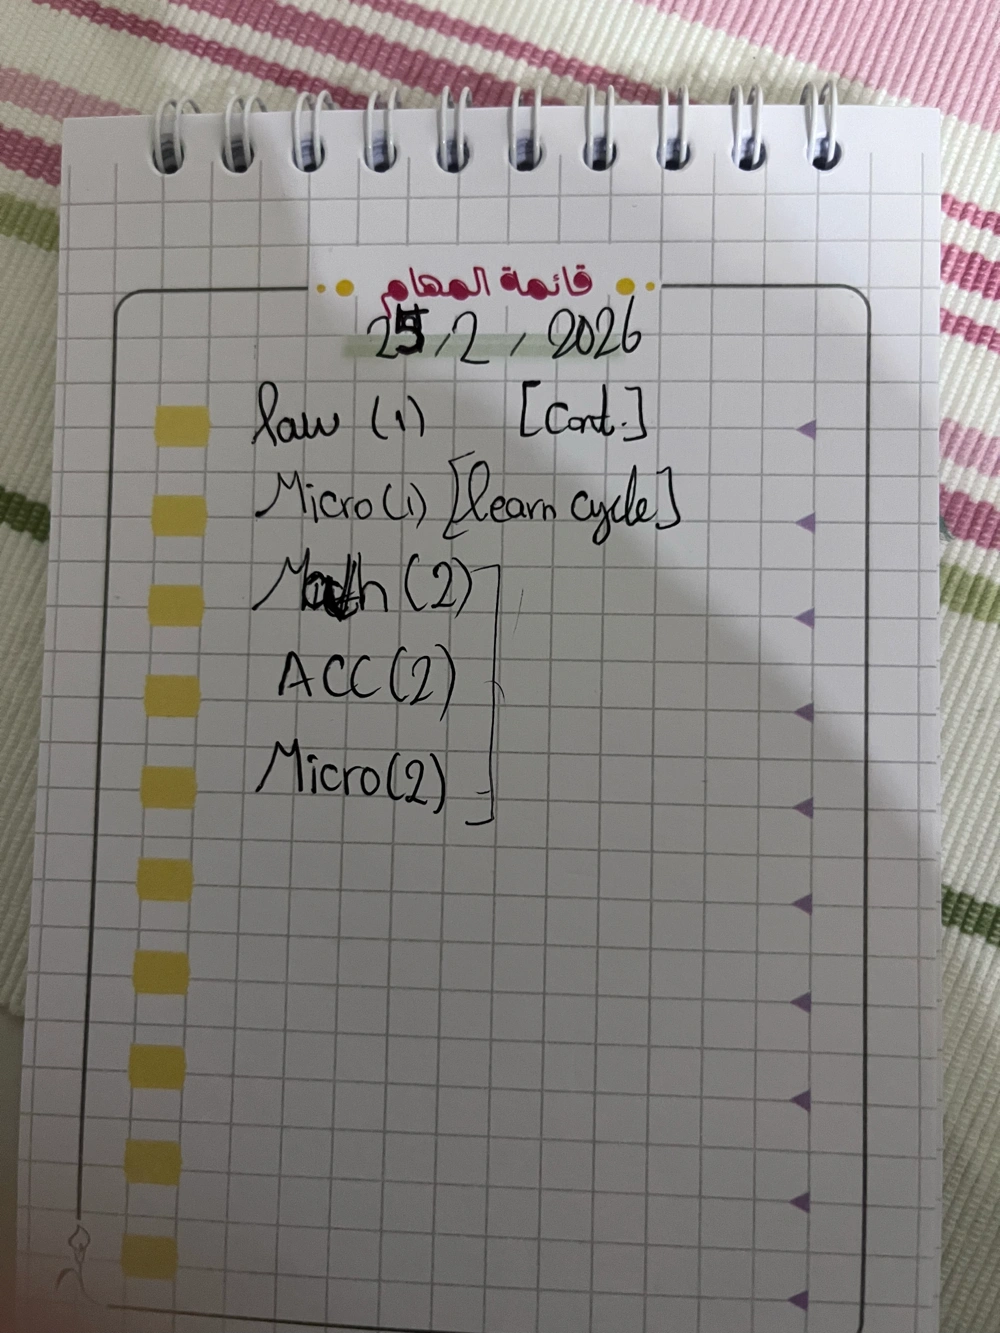 قائمة المهام
25/2/2026
law (1) [Cont.]
Micro(1) [learn cycle]
Math (2)
ACC(2)
Micro(2)